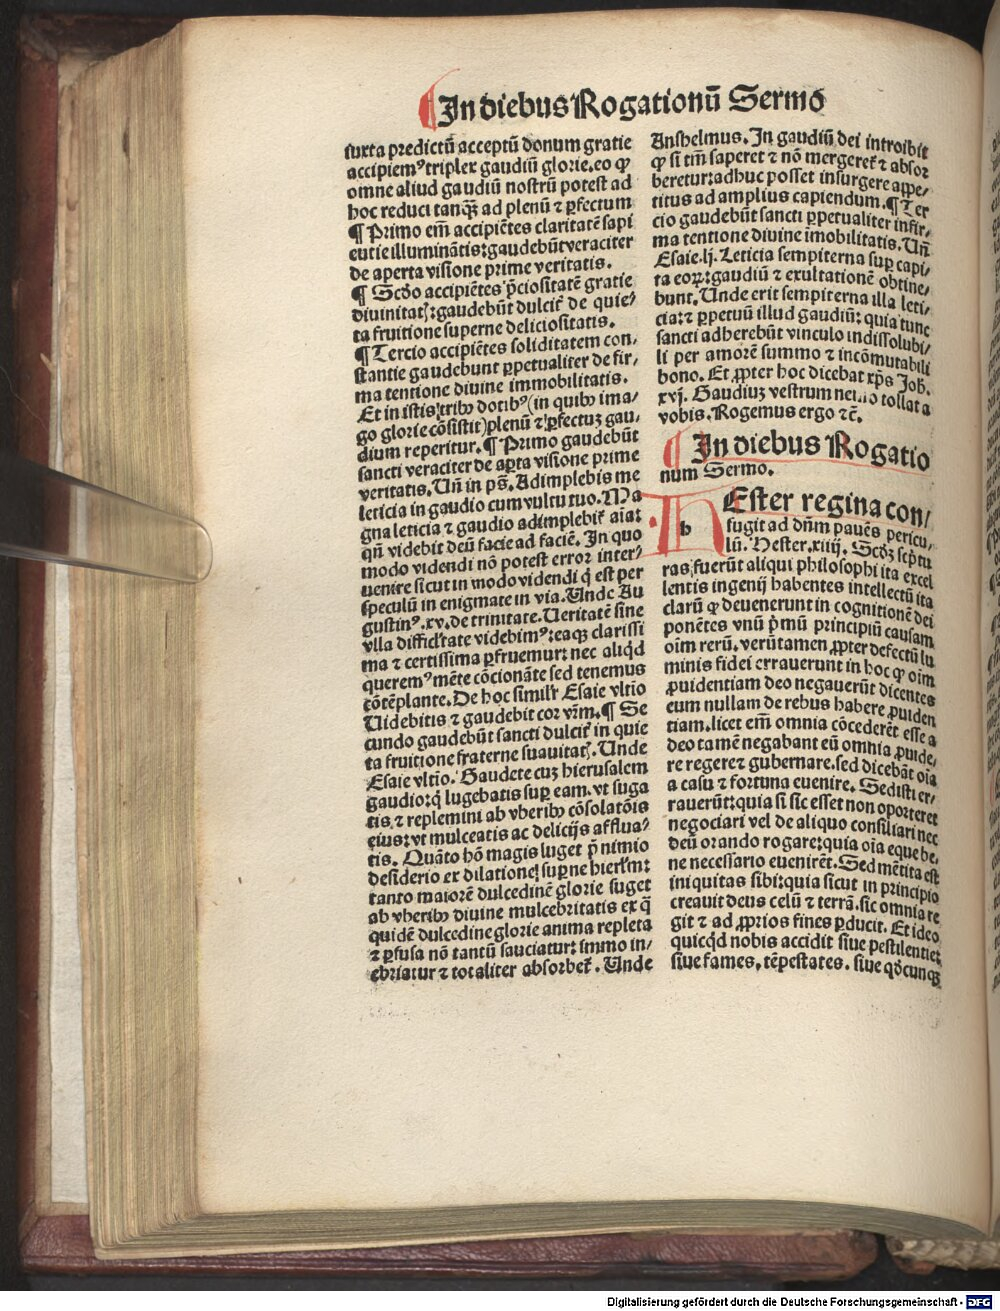 ¶In diebus Rogationū Sermo
iuxta predictū acceptū donum gratie
accipiemꝰ triplex gaudiū glorie. eo ꝙ
omne aliud gaudiū nostrū potest ad
hoc reduci tanqȝ ad plenū ⁊ ꝑfectum
¶ Primo em̄ accipiētes claritatē sapi
entie illuminātis: gaudebūt veraciter
de aperta visione prime veritatis.
¶ Scd̄o accipiētes p̄ciositatē gratie
diuinitatꝭ: gaudebūt dulcit᷑ de quie⸗
ta fruitione superne deliciositatis.
¶ Tercio accipiētes soliditatem con⸗
stantie gaudebunt ꝑpetualiter de fir⸗
ma tentione diuine immobilitatis.
Et in istis tribꝰ dotibꝰ (in quibꝰ ima⸗
go glorie cōsistit) plenū ⁊ ꝑfectuȝ gau⸗
dium reperitur. ¶ Primo gaudebūt
sancti veraciter de aꝑta visione prime
veritatis. Un̄ in ps̄. Adimplebis me
leticia in gaudio cum vultu tuo. Ma
gna leticia ⁊ gaudio adimplebit᷑ aīa:
qn̄ videbit deū facie ad faciē. In quo
modo videndi nō potest error inter⸗
uenire sicut in modo videndi q̇ est per
speculū in enigmate in via. Unde Au
gustinꝰ. xv. de trinitate. Ueritatē sine
vlla difficl̓tate videbimꝰ: eaqȝ clarissi
ma ⁊ certissima ꝑfruemur: nec aliqd̓
queremꝰ mēte cōcionāte sed tenemus
cōtēplante. De hoc simil̓r Esaie vltio
Uidebitis ⁊ gaudebit cor vr̄m. ¶ Se
cundo gaudebūt sancti dulcit᷑ in quie
ta fruitione fraterne suauitatꝭ. Unde
Esaie vltīo. Gaudete cuȝ hierusalem
gaudio: q̇ lugebatis suꝑ eam. vt suga
tis ⁊ replemini ab vberibꝰ cōsolatōis
eius: vt mulceatis ac delicijs afflua⸗
tis. Quāto hō magis luget p̄ nimio
desiderio ex dilatione suꝑne hierl̓m:
tanto maiorē dulcedinē glorie suget
ab vberibꝰ diuine mulcebritatis ex q̄
quidē dulcedine glorie anima repleta
⁊ ꝑfusa nō tantū sauciatur: immo in⸗
ebriatur ⁊ totaliter absorbet᷑. Unde
Anshelmus. In gaudiū dei introibit
ꝙ si tm̄ saperet ⁊ nō mergeret᷑ ⁊ absor
beretur: adhuc posset insurgere appe⸗
titus ad amplius capiendum. ¶ Ter
cio gaudebūt sancti ꝑpetualiter infir⸗
ma tentione diuine īmobilitatis. Un̄
Esaie. lj. Leticia sempiterna suꝑ capi⸗
ta eoꝝ: gaudiū ⁊ exultationē obtine⸗
bunt. Unde erit sempiterna illa leti⸗
cia: ⁊ ꝑpetuū illud gaudiū: quia tunc
sancti adherebūt vinculo indissolubi⸗
li per amorē summo ⁊ incōmutabili
bono. Et ꝓpter hoc dicebat xp̄s Joh̄.
xvj. Gaudiuȝ vestrum nemo tollat a
vobis. Rogemus ergo ⁊c̄.
¶ In diebus Rogatio
num Sermo.
HEster regina con⸗
fugit ad dn̄m pauēs pericu⸗
lū. Hester. xiiij. Scd̓ȝ scp̄tu
ras fuerūt aliqui philosophi ita excel
lentis ingenij habentes intellectū ita
clarū ꝙ deuenerunt in cognitionē dei
ponētes vnū p̄mū principiū causam
oīm rerū. verūtamen ꝓpter defectū lu
minis fidei errauerunt in hoc ꝙ oīm
ꝓuidentiam deo negauerūt dicentes
eum nullam de rebus habere ꝓuiden
tiam. licet em̄ omnia cōcederēt esse a
deo tamē negabant eū omnia ꝓuide⸗
re regere ⁊ gubernare. sed dicebāt oīa
a casu ⁊ fortuna euenire. Sed isti er⸗
rauerūt: quia si sic esset non oporteret
negociari vel de aliquo consiliari nec
deū orando rogare: quia oīa eque be⸗
ne necessario euenirēt. Sed mētita est
iniquitas sibi: quia sicut in principio
creauit deus celū ⁊ terrā. sic omnia re
git ⁊ ad ꝓprios fines ꝑducit. Et ideo
quicqd̓ nobis accidit siue pestilentie:
siue fames, tēpestates. siue qd̓cunqȝ
Digitalisierung gefördert durch die Deutsche Forschungsgemeinschaft - DFG